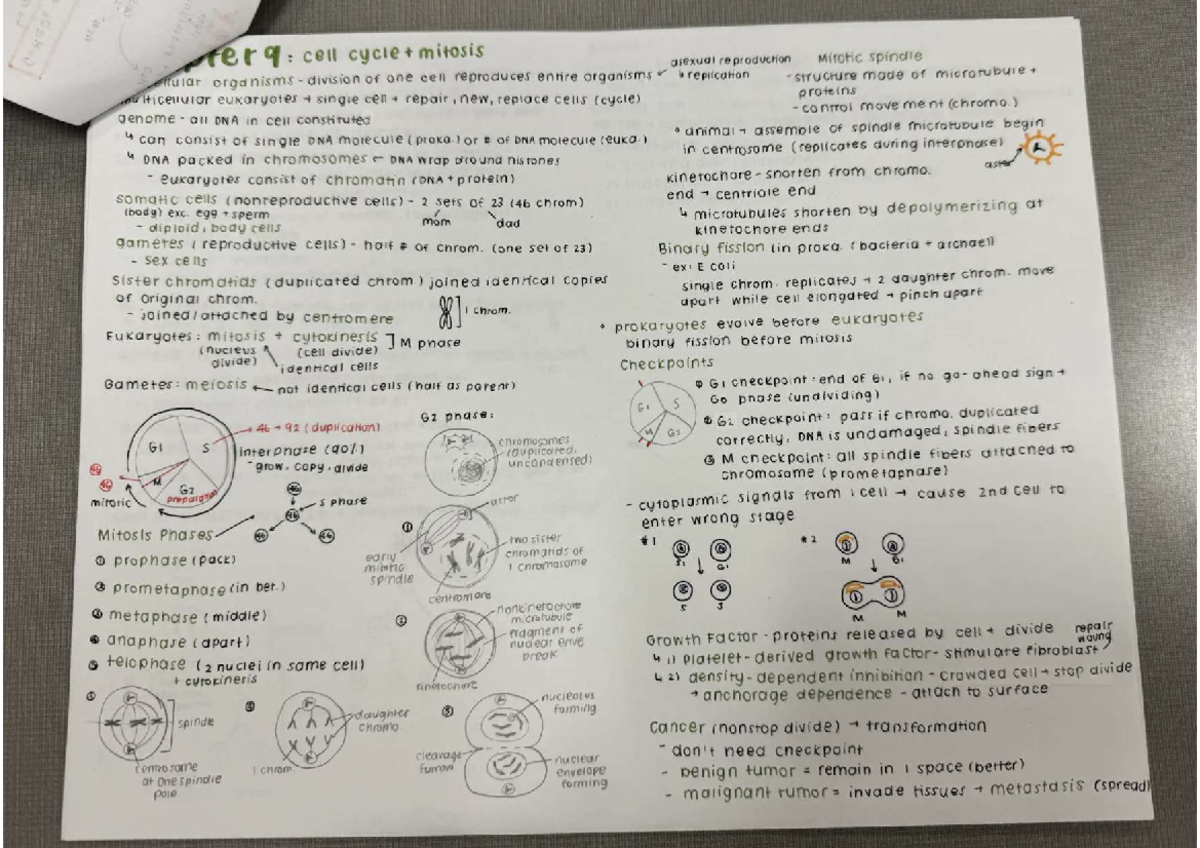 pter 9: cell cycle + mitosis
ellular organisms - division of one cell reproduces entire organisms ↙ asexual reproduction
↳ replication
multicellular eukaryotes → single cell → repair, new, replace cells (cycle)
genome - all DNA in cell constituted
↳ can consist of single DNA molecule (proka.) or # of DNA molecule (euka.)
↳ DNA packed in chromosomes ← DNA wrap around histones
- eukaryotes consist of chromatin (DNA + protein)
somatic cells (nonreproductive cells) - 2 sets of 23 (46 chrom)
(body) exc. egg + sperm
mom dad
- diploid, body cells
gametes (reproductive cells) - half # of chrom. (one set of 23)
- sex cells
Sister chromatids (duplicated chrom.) joined identical copies
of original chrom.
- joined/attached by centromere
1 chrom.
Eukaryotes: mitosis + cytokinesis ] M phase
(nucleus divide) (cell divide)
identical cells
Gametes: meiosis ← not identical cells (half as parent)
46 → 92 (duplication)
G1 S
M G2
preparation
interphase (90%)
- grow, copy, divide
46
46
mitotic
46
S phase
46
46 46
Mitosis Phases
① prophase (pack)
② prometaphase (in bet.)
③ metaphase (middle)
④ anaphase (apart)
⑤ telophase (2 nuclei in same cell)
+ cytokinesis
spindle
centrosome
at one spindle
pole
daughter
chromo
1 chrom.
G2 phase:
chromosomes
(duplicated,
uncondensed)
①
early
mitotic
spindle
two sister
chromatids of
1 chromosome
centromere
nonkinetochore
microtubule
fragment of
nuclear enve
break
kinetochore
nucleolus
forming
cleavage
furrow
nuclear
envelope
forming
Mitotic spindle
- structure made of microtubule +
proteins
- control movement (chromo.)
* animal → assemble of spindle microtubule begin
in centrosome (replicates during interphase)
aster
kinetochore - shorten from chromo.
end → centriole end
↳ microtubules shorten by depolymerizing at
kinetochore ends
Binary fission (in proka. (bacteria + archae))
- ex: E coli
single chrom. replicates → 2 daughter chrom. move
apart while cell elongated → pinch apart
* prokaryotes evolve before eukaryotes
binary fission before mitosis
Checkpoints
G1 S
M G2
① G1 checkpoint: end of G1, if no go-ahead sign →
G0 phase (undividing)
② G2 checkpoint: pass if chromo. duplicated
correctly, DNA is undamaged, spindle fibers
③ M checkpoint: all spindle fibers attached to
chromosome (prometaphase)
- cytoplasmic signals from 1 cell → cause 2nd cell to
enter wrong stage
#1
G1
S S
#2
M G1
M M
Growth Factor - proteins released by cell → divide
repair
wound
↳ 1) platelet-derived growth factor - stimulate fibroblast
↳ 2) density-dependent inhibition - crowded cell → stop divide
→ anchorage dependence - attach to surface
Cancer (nonstop divide) → transformation
- don't need checkpoint
- benign tumor = remain in 1 space (better)
- malignant tumor = invade tissues → metastasis (spread)